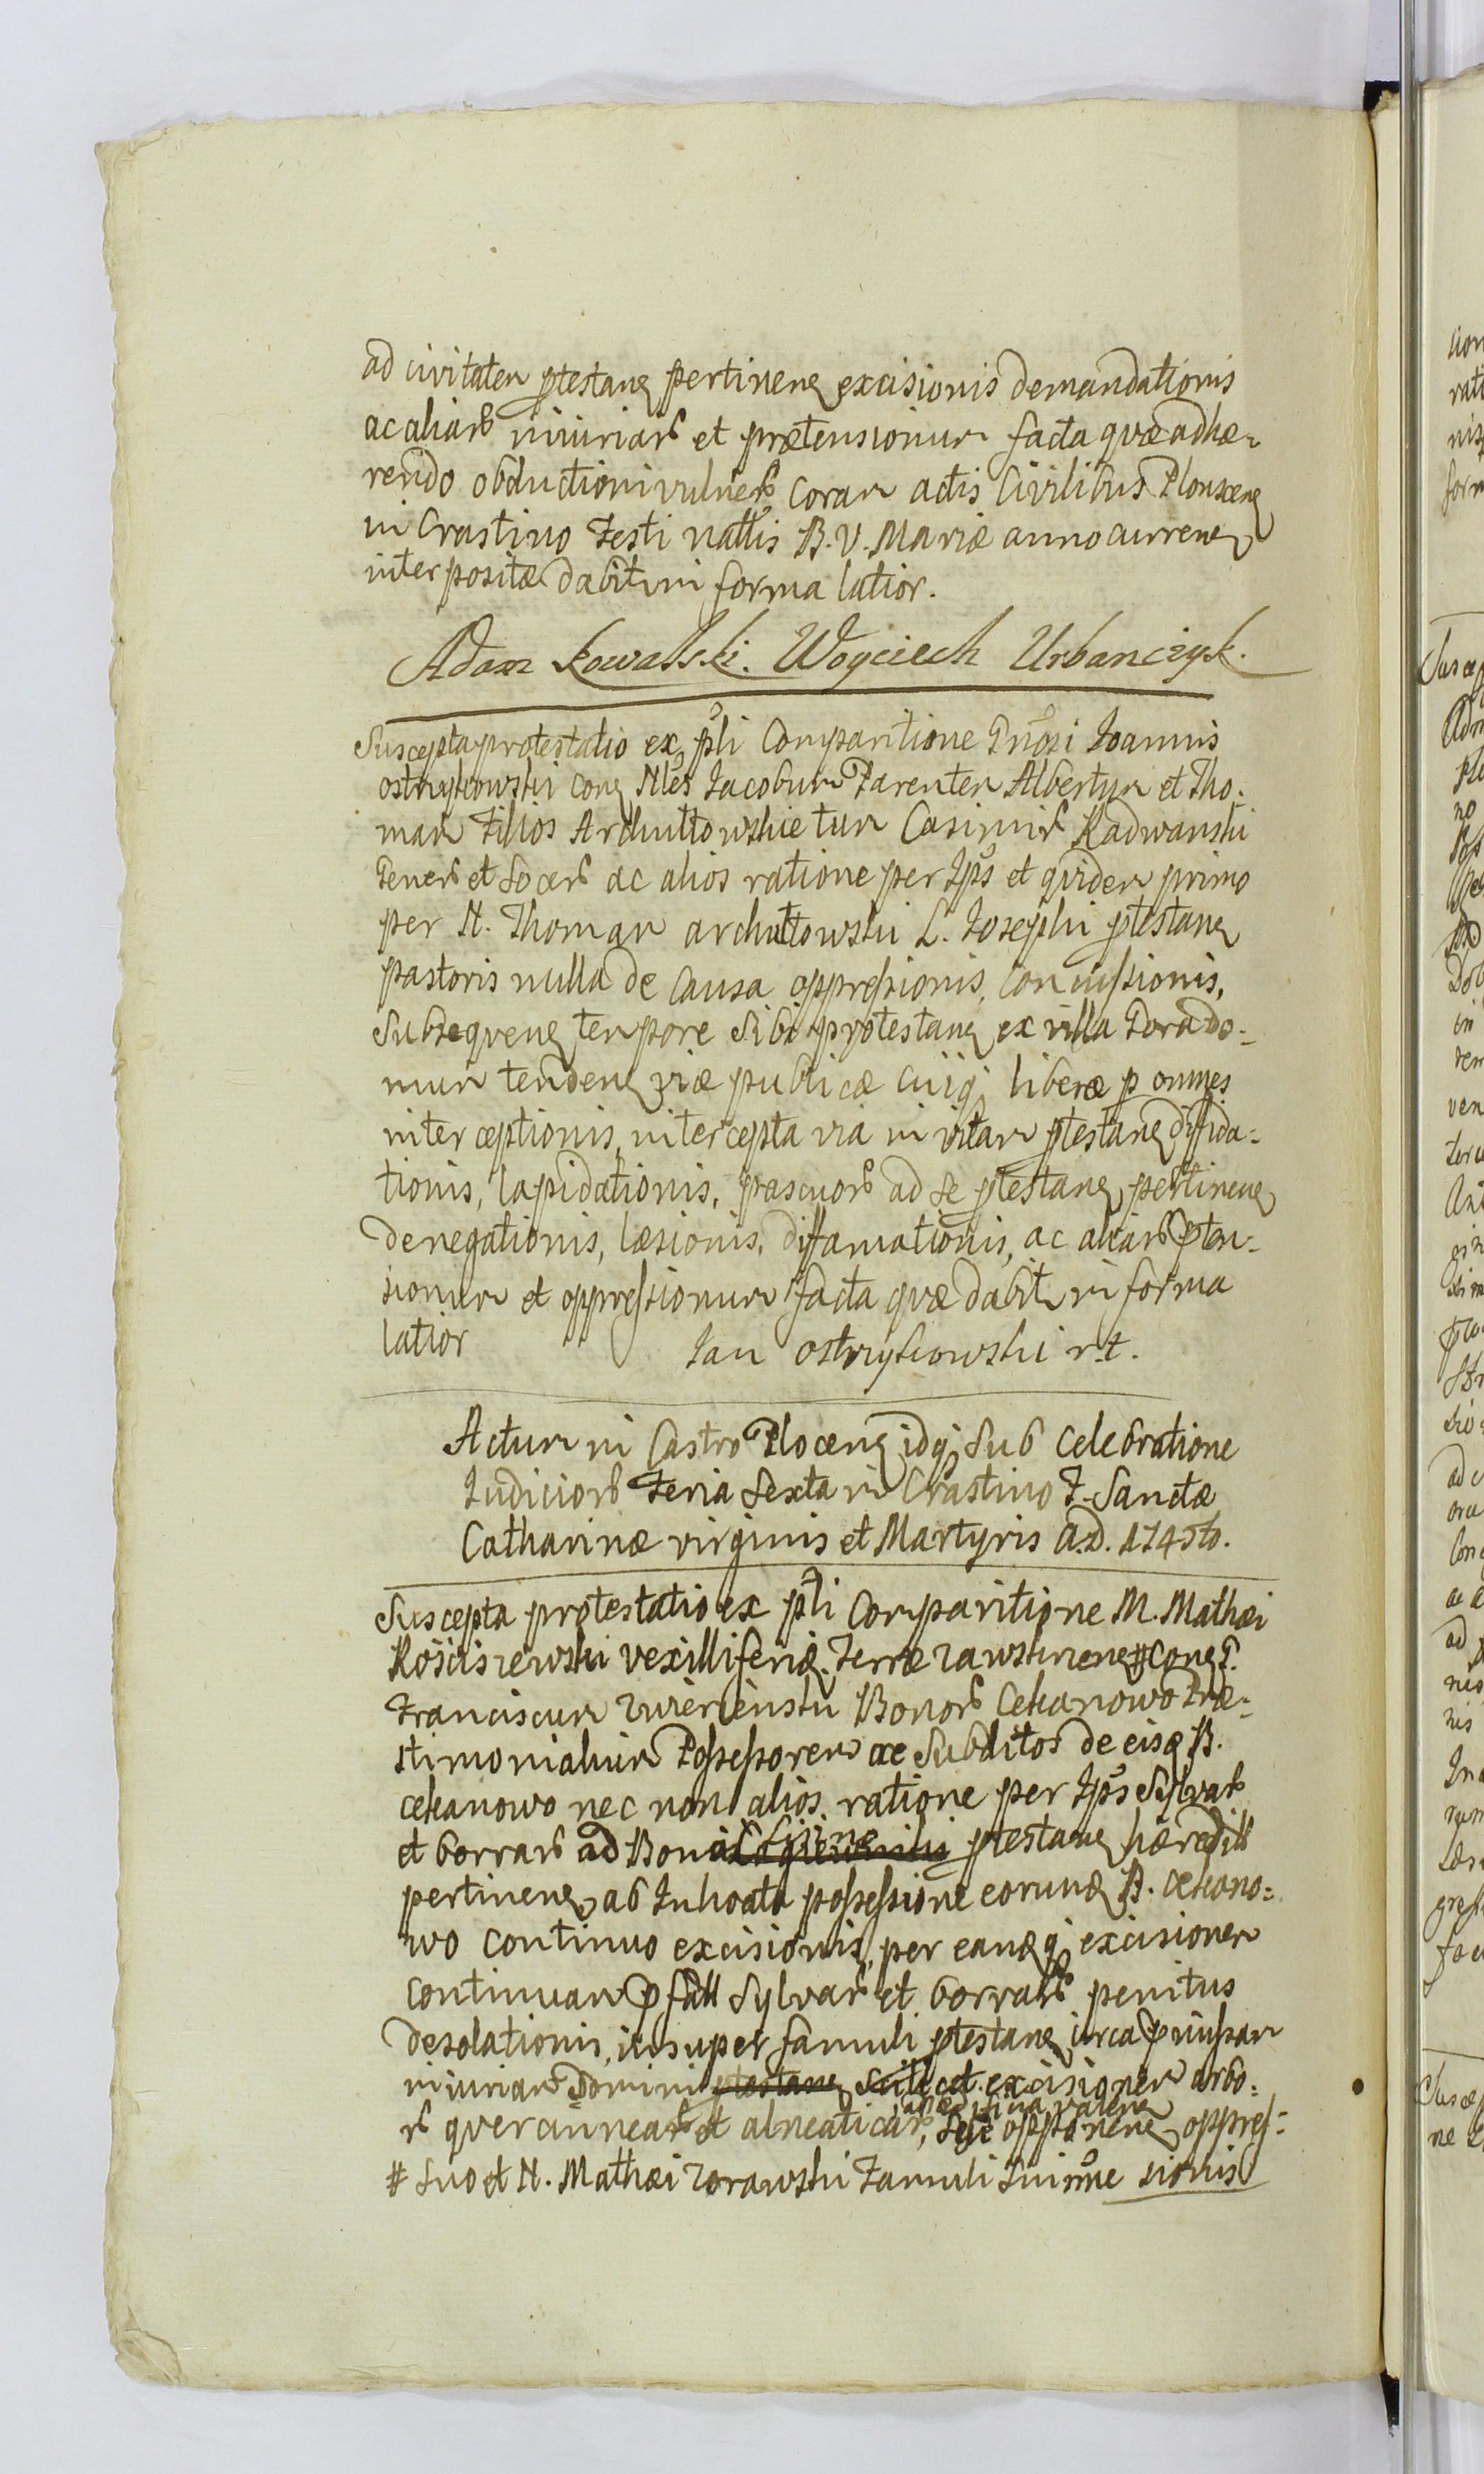 ad civitatem ptestang pertineng excisionis demandationis
ac aliar injuriar et prætensionum facta quæ adhæ-
rendo obductioni vulner coram actis Civilibus Plonsceng
in Crastino Festi natlis B. V. Mariæ anno curreng
interpositæ dabit in forma latior.
Adam Kowalski. Woyciech Urbanczyk.
Suscepta protestatio ex psli Comparitione Gnosi Ioannis
ostrykowski cong Nles Iacobum Parentem Albertum et Tho-
mam Filios Archuttowskie tum Casimir Radwanski
Gener et Socer ac alios ratione per Ips et qvidem primo
per N. Thomam archuttowski L. Iosephi ptestang
pastoris nulla de Causa oppressionis, Concussionis,
Subseqveng tempore Sibi protestang ex villa Gora do-
mum tendeng viæ publicæ cuiq liberæ p omnes
interceptionis, intercepta via in vitam ptestang diffida-
tionis, lapidationis, pascuor ad se ptestang pertineng
denegationis, læsionis, diffamationis, ac aliar pten-
sionum et oppressionum facta quæ dabit in forma
latior Ian ostrykowski r.t.
Actum in Castro Ploceng idq Sub Celebratione
Iudicior Feria Sexta in Crastino F. Sanctæ
Catharinæ virginis et Martyris A.D. 174
Suscepta protestatio ex psli Comparitione M. Mathæi
Kosciszewski vexilliferi Terræ zawskrineng # Cong G.
Franciscum zwierienski Bonor Cekanowo Præ-
stimonialium Possessorem ac Subditos de eisq B.
cekanowo nec non alios ratione per Ips Sylvar
et borrar ad Bona ptestang hæredit
pertineng ab Inhoata possessione eorunq B. cekano-
wo continuo excisionis, per eanqq excisionem
continuam pfatt Sylvar et borrar penitus
desolationis, insuper famuli ptestang circa pmissam
injuriam Domini ptestang Scilicet excisionem arbo-
r quercinnear et alneaticar, ad ædificia valeng Sese opponeng oppres-
# suo et N. Mathæi zorawski Famuli Sui nne sionis